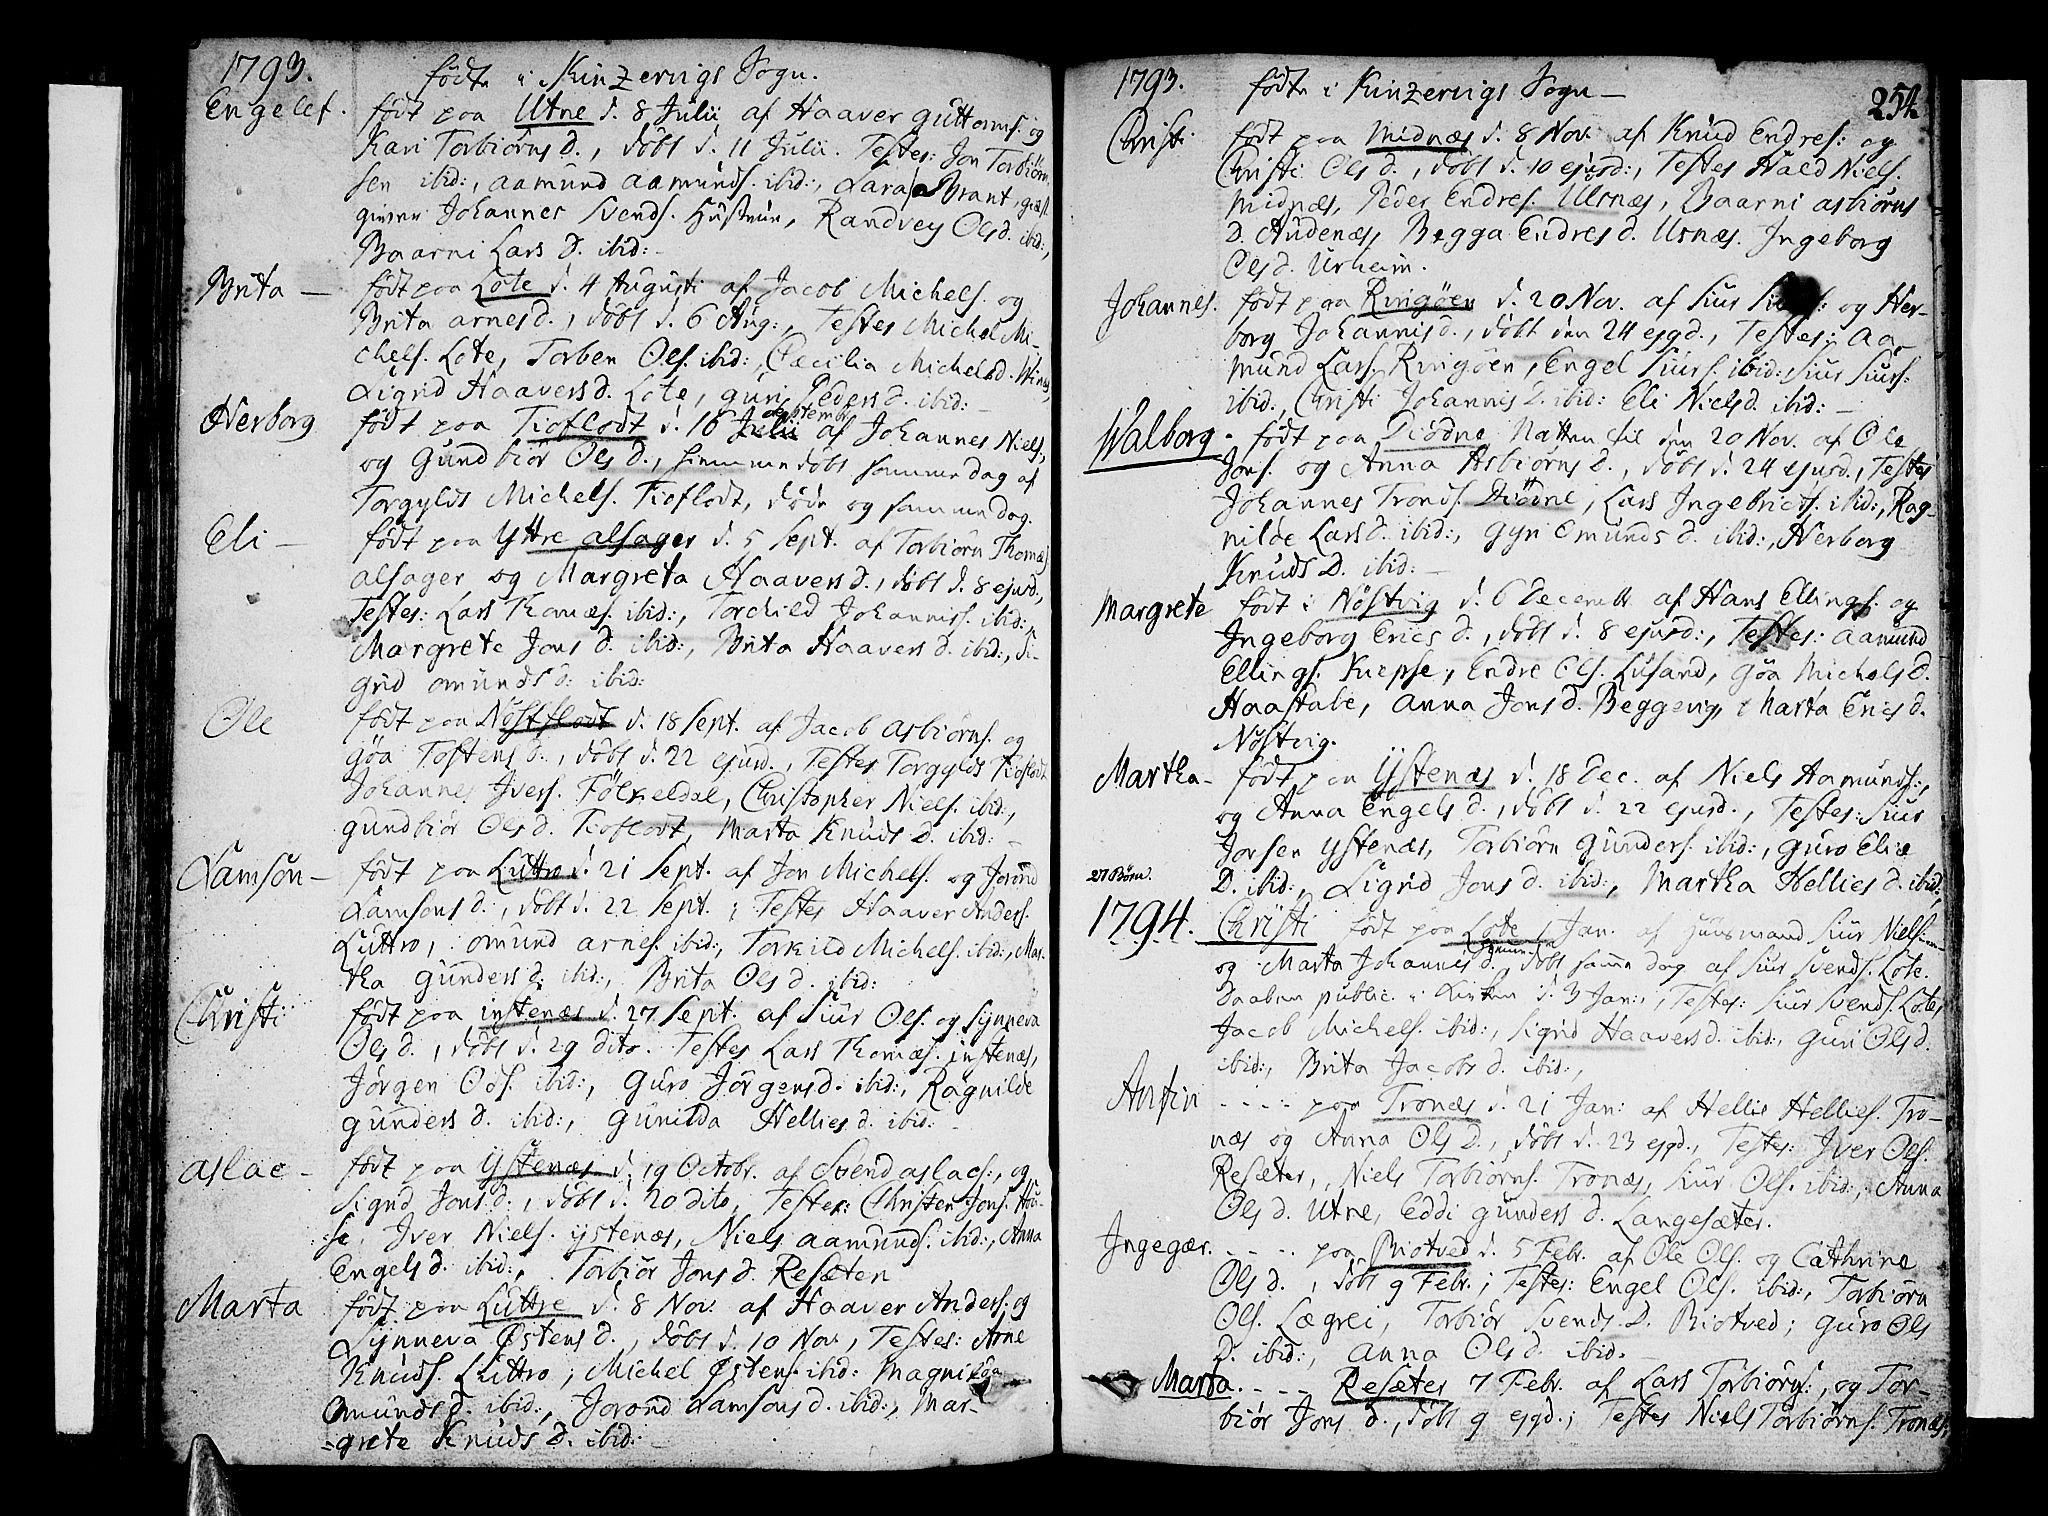 1793.
fødte i Kinzervigs Sogn.
Engelef. født paa Utne d. 8 Julii af Haaver Guttorms. og
Kari Torbiørns D., døbt d. 11 Julii. Testes: Jon Torbiørn-
sen ibid:, Aamund Aamunds. ibid:, Lara Brant, giæst
giveren Johannes Svends. Hustrue, Randvey Olsd. ibid:,
Baarni Lars D. ibid:
Brita — født paa Lote d. 4 Augusti af Jacob Michels. og
Brita Arnesd., døbt d. 6 Aug:, Testes Michel Mi-
chels. Lote, Torben Ols. ibid:, Cæcilia Michelsd.
Sigrid Haavers d. Lote, Guri Peders d. ibid: —
Herborg født paa Tioflodt d. 16 Julii Septembr af Johannes Niels.
og Gundbiør Ols D., hiemmedøbt samme dag af
Torgyld Michels. Tioflodt, døde og samme dag.
Eli — født paa Yttre Alsager d. 5 Sept. af Torbiørn Thomæs.
Alsager og Margreta Haavers d., døbt d. 8 ejusd.,
Testes: Lars Thomæs. ibid:, Torchild Johanniss. ibid:,
Margrete Jons D. ibid:, Brita Haavers d. ibid:, Si-
grid Omunds d: ibid:
Ole født paa Nøstflodt d. 18 Sept. af Jacob Asbiørns. og
Gøa Tostens d., døbt d. 22 ejusd., Testes Torgylds Tioflodt
Johannes Ivers. Følkeldal, Christopher Niels. ibid:,
Gundbiør Ols d. Tioflodt, Marta Knuds D. ibid: —
Samson — født paa Luttro d. 21 Sept. af Jon Michels. og Jorund
Samsons d., døbt d. 22 Sept.; Testes Haaver Anders.
Luttro, Omund Arnes. ibid:, Torkild Michels. ibid:, Mar-
tha Gunders d. ibid:, Brita Ols d. ibid:
Christi født paa instenæs d. 27 Sept. af Siur Ols. og Synneva
Ols d., døbt d. 29 dito. Testes Lars Thomæs. instenæs,
Jørgen Ols. ibid:, Guro Jørgensd. ibid:, Ragnilde
Gunders d. ibid:, Gunilda Hellies d. ibid: —
Aslac — født paa Ystenæs d. 19 Octobr. af Svend Aslacs:, og
Sigrid Jons d., døbt d. 20 dito, Testes: Christen Jons. Hu-
se, Iver Niels. ystenæs, Niels Aamunds. ibid:, Anna
Engels d. ibid:, Torbiør Jons d. Resæten
Marta født paa Luttro d. 8 Nov. af Haaver Anders: og
Synneva Østens d., døbt d. 10 Nov, Testes: Arne
Knuds. Luttro, Michel Østens. ibid: Magnilda
Omunds d. ibid:, Jorond Samsons d. ibid:, Mar-
grete Knuds D. ibid: —
1793. fødte i Kinzervigs Sogn — 254
Christi født paa Midnæs d. 8 Nov. af Knud Endres: og
Christi Ols d., døbt d. 10 ejusd:, Testes Hald Niels.
Midnæs, Peder Endres. Ulsnæs, Baarni Asbiørns
D. Audenæs, Begga Endres d. Usnæs. Ingeborg
Ols d. Urheim.
Johannes. født paa Ringøen d. 20 Nov. af Siur og Her-
borg Johannis d., døbt den 24 ejgd., Testes: Aa-
mund Lars. Ringøen, Engel Siurs. ibid: Siur Siurs:
ibid:, Christi Johannis D. ibid: Eli Niels d. ibid: —
Walborg. født paa Diødne Natten til den 20 Nov. af Ole
Jons. og Anna Asbiørns D., døbt d. 24 ejusd., Testes
Johannes Tronds. Diødne, Lars Ingebricts. ibid:, Rag-
nilde Lars d. ibid:, Gyri Omunds D. ibid:, Herborg
Knuds D. ibid: —
Margrete født i Nøstvig d. 6 Decembr af Hans Ellings. og
Ingeborg Erics d., døbt d. 8 ejusd:, Testes: Aamund
Ellings. Kiepse, Endre Ols. Lusand, Gøa Michels D.
Haastabe, Anna Jons d. Beggevig, Marta Erics d.
Nøstvig.
Martha — født paa Ystenæs d. 18 Dec. af Niels Aamunds.,
og Anna Engels d., døbt d. 22 ejusd., Testes: Siur
Jorsen ystenæs, Torbiørn Gunders. ibid:, Guro Eliæ
D. ibid:, Sigrid Jons d. ibid:, Martha Hellies d. ibid,
27 Børn.
1794. Christi født paa Lote 1 Jan. af Huusmand Siur Niels.
og Marta Johannes d. døbt samme dag af Siur Svends. Lote.
Daaben public. i Kirken d. 3 Jan:, Testes: Siur Svends. Lote,
Jacob Michels. ibid:, Sigrid Haavers d. ibid:, Guri Ols d.
ibid:, Brita Jacobs d. ibid:,
Anfin - - - - paa Tronæs d. 21 Jan: af Hellie Hellies. Tro-
næs og Anna Ols D., døbt d. 23 ejgd., Testes: Iver Ols.
Resæter, Niels Torbiørns. Tronæs, Siur Ols. ibid:, Anna
Ols d. Utne, Eddi Gunders d. Langesæter.
Ingegær. - - - - paa Riotved d. 5 Febr. af Ole Ols. og Cathrine
Ols d., døbt 9 Febr.; Testes: Engel Ols. ibid:, Torbiørn
Ols. Lægrei, Torbiør Svends D. Riotved; Guro Ols
D. ibid:, Anna Ols d. ibid. —
Marta. - - - - Resæter 7 Febr. af Lars Torbiørns:, og Tor-
biør Jons d., døbt 9 ejgd.; Testes Niels Torbiørns. Tronæs,